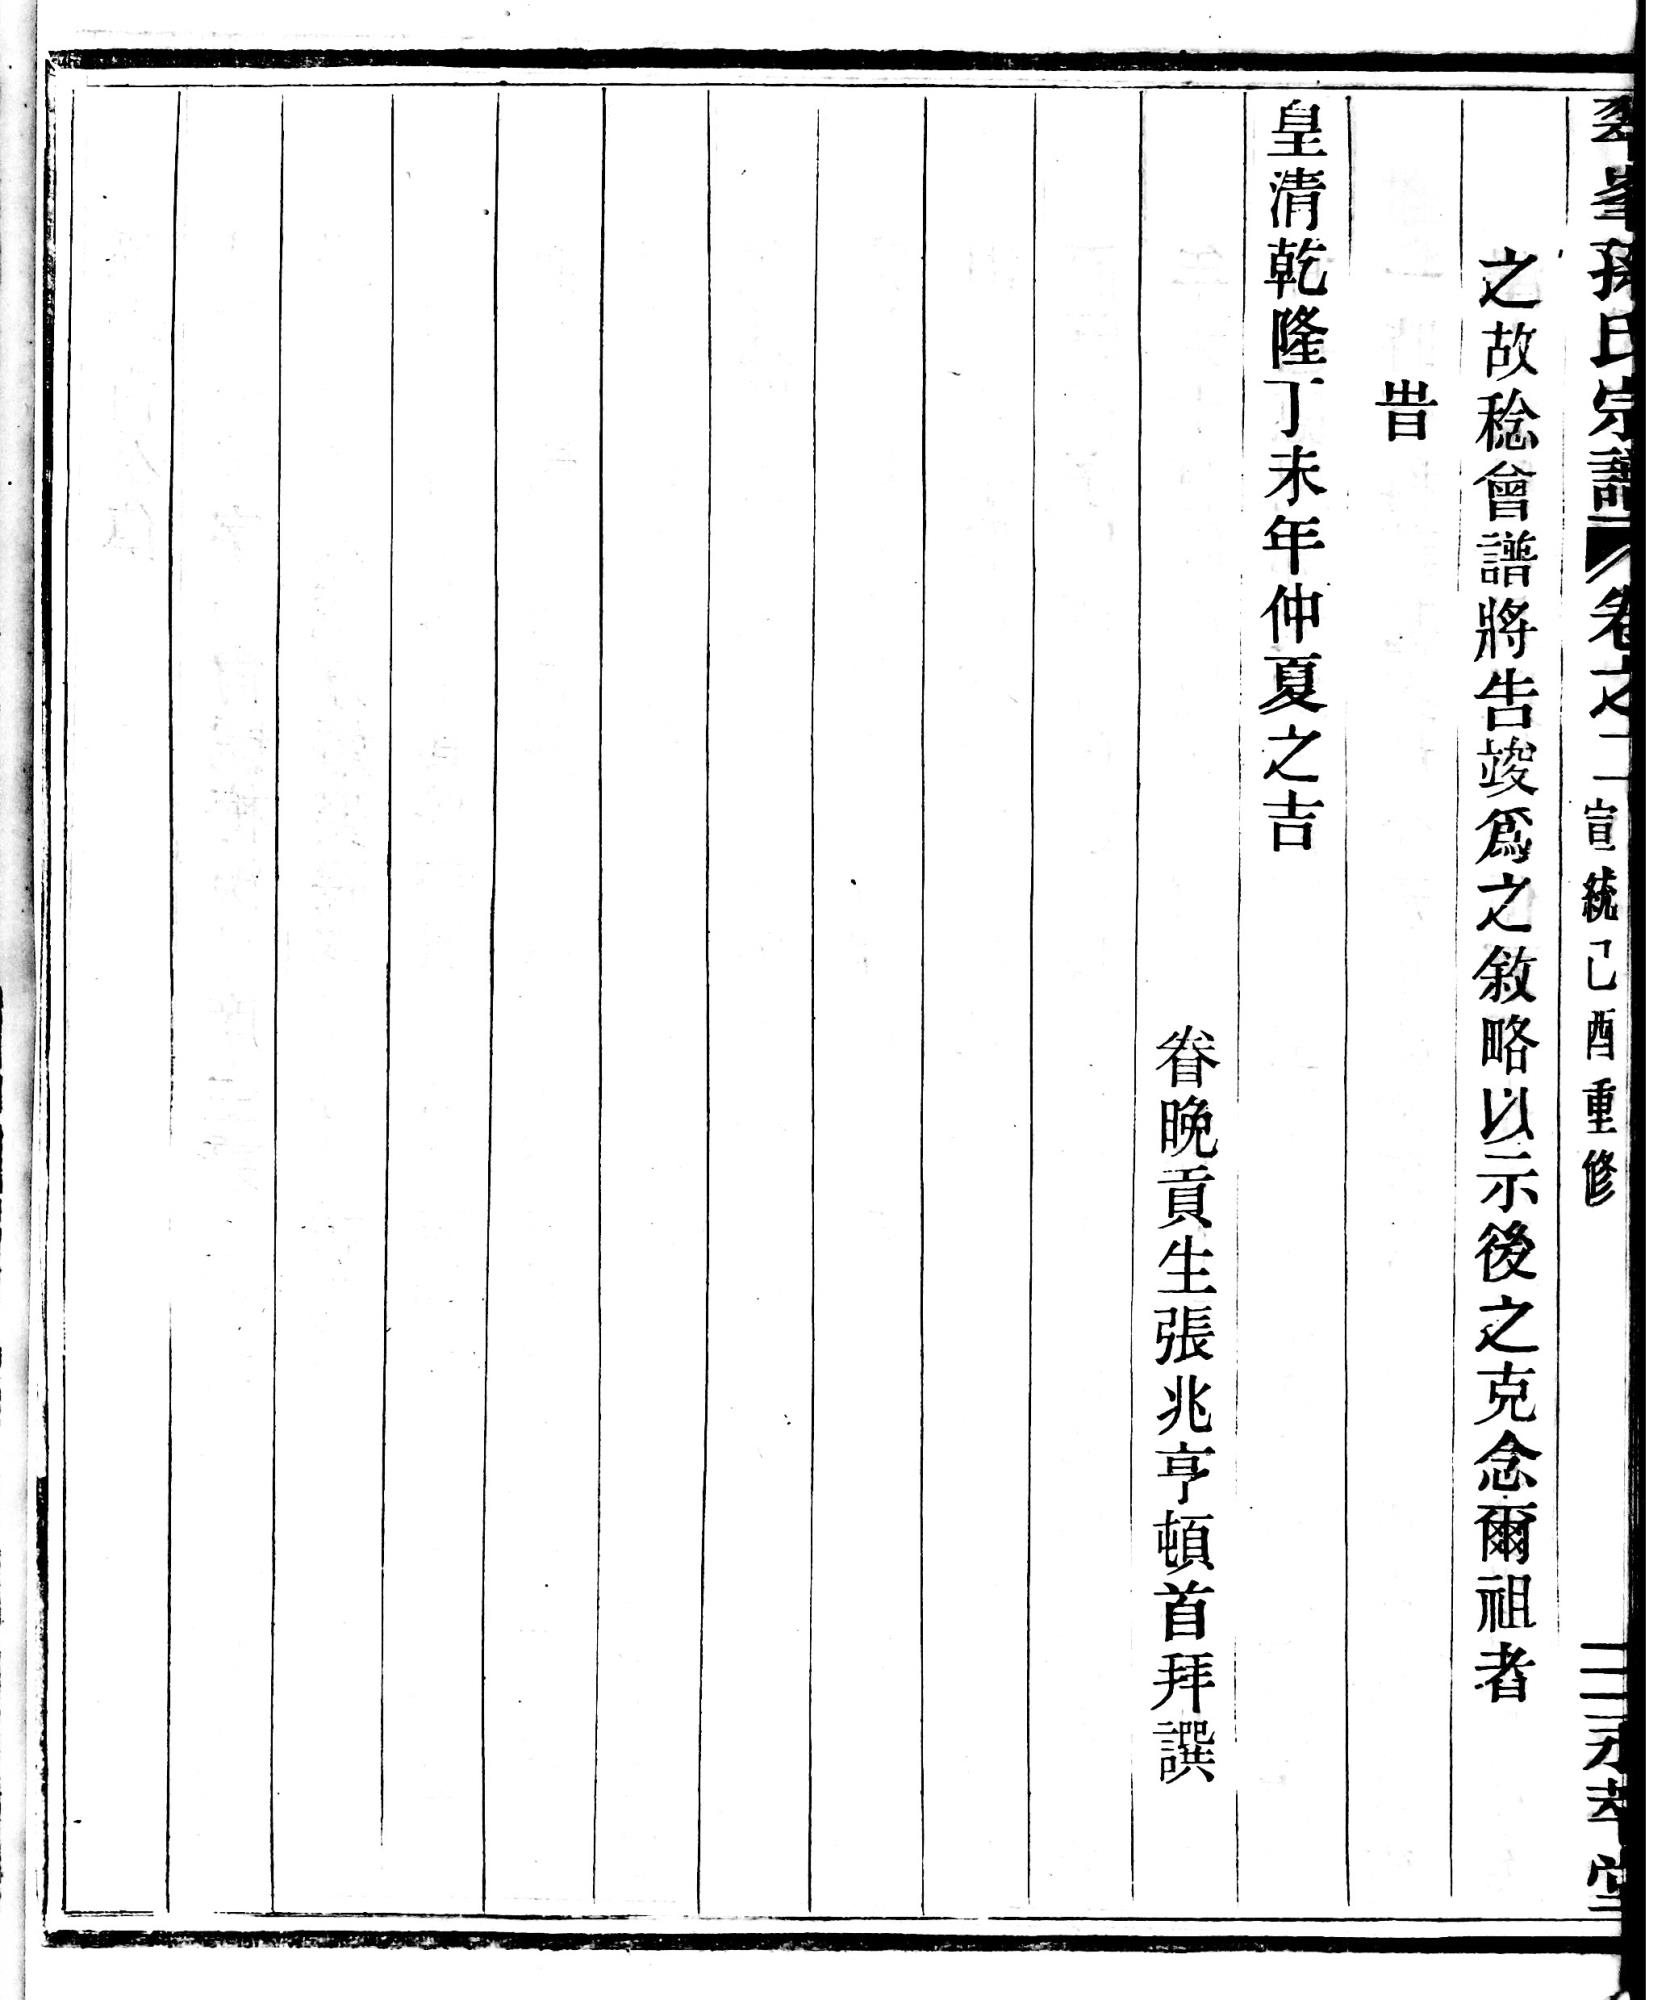 翠峯孫氏宗譜 卷之二 宣統己酉重修 永萃堂
之故稔會譜將告竣爲之敘略以示後之克念爾祖者
旹
皇清乾隆丁未年仲夏之吉
眷晚貢生張兆亨頓首拜譔